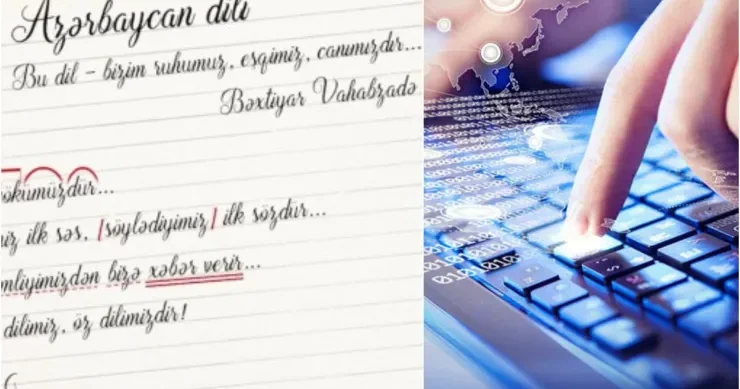 Azərbaycan dili
Bu dil – bizim ruhumuz, eşqimiz, canımızdır...
Bəxtiyar Vahabzadə
ökümüzdür...
iz ilk səs, [söylədiyimiz] ilk sözdür...
mliyimizdən bizə xəbər verir...
dilimiz, öz dilimizdir!